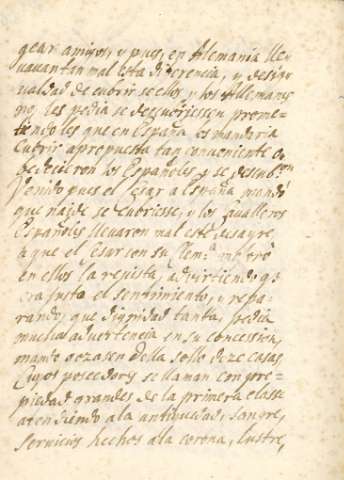 gear amigos, y pues, en Alemania lle
vavan tan mal esta diferencia, y desigu
valdad de cubrirse ellos, y los Allemanes
no, les pedia se descuvriessen prome-
tiendoles que en España los mandaria
cubrir a propuesta tan conveniente o
bedecieron los Españoles y se descubrn
Venido pues el Cesar a España mandó
que nadie se cubriesse, y los Cavalleros
Españoles llevaron mal este desayre,
a que el Cesar con su Clema
en ellos la revista, advirtiendo q
era justo el sentimiento, y repa-
rando, que dignidad tanta, pedia
mucha advertencia en su concession,
mando gozasen della solo doze casas
Cuyos poseedores se llaman con pro-
piedad grandes de la primera classe
atendiendo ala antiguedad, sangre,
servicios hechos ala corona, lustre,